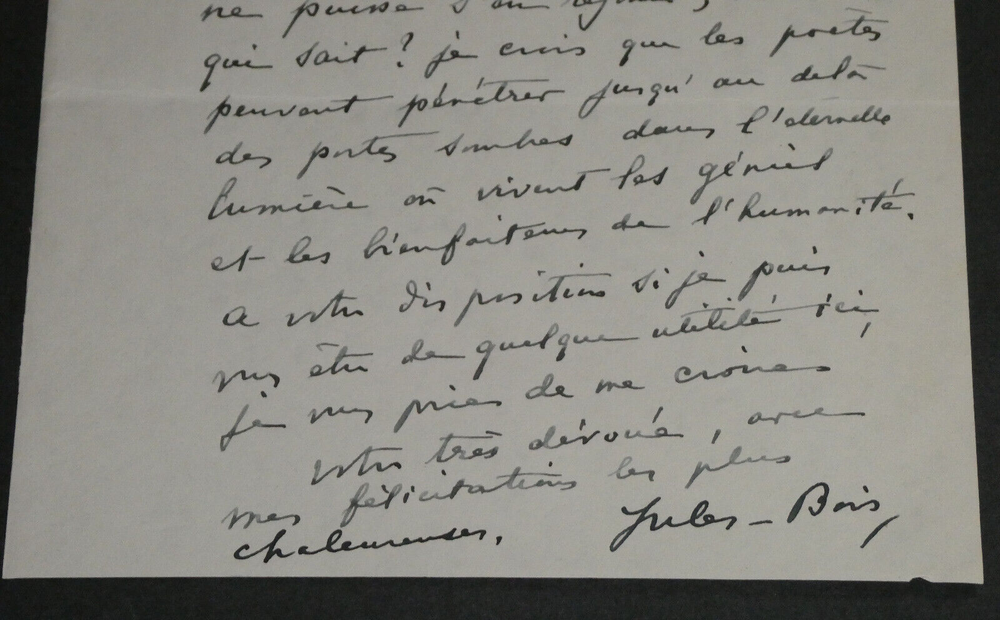 ne puisse s'en
qui sait ? je crois que les poètes
peuvent pénétrer jusqu'au delà
des portes sombres dans l'éternelle
lumière où vivent les génies
et les bienfaiteurs de l'humanité.
A votre disposition si je puis
vous être de quelque utilité ici,
je vous prie de me croire
votre très dévoué, avec
mes félicitations les plus
chaleureuses,
Jules-Bois